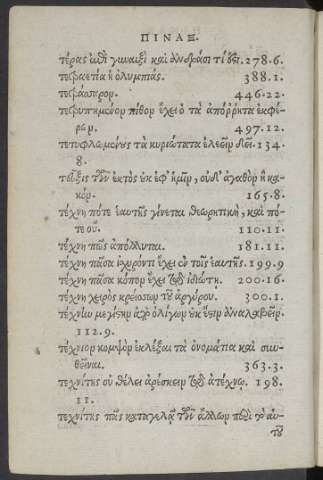 ΠΙΝΑΞ.
τέρας ὠδὶ γυναιξὶ καὶ ἀνδράσι τί δεῖ. 278.6.
τετραετία ἡ ὀλυμπιάς. 388.1.
τετράωρον. 446.22.
τετρυπημένον πίθον ἔχει ὁ τὰ ἀπόῤῥητα ἐκφέ-
ρων. 497.12.
τετυφλωμένους τὰ κυριώτατα ἐλεεῖν δεῖ. 134.
8.
τεῦξις τῶν ἐκτὸς οὐκ ἐφ᾽ ἡμῖν, οὐδ᾽ ἀγαθὸν ἢ κα-
κόν. 165.8.
τέχνη πότε ἑαυτῆς γίνεται θεωρητικὴ, καὶ πό-
τε οὔ. 110.11.
τέχνη πῶς ἀπόλλυται. 181.11.
τέχνη πᾶσα ἰχυρόν τι ἔχει ἐν τοῖς ἑαυτῆς. 199.9
τέχνη πᾶσα κόπον ἔχει τῷ ἰδιώτῃ. 200.16.
τέχνη χειρὸς κρείσσων τοῦ ἀργύρου. 300.1.
τέχνην μεγίστην ἀπὸ ὀλίγων οὐκ ἔστιν ἀναλαβεῖν.
112.9.
τέχνιον κομψὸν ἐκλέξαι τὰ ὀνομάτια καὶ συν-
θεῖναι. 363.3.
τεχνίτης οὐ θέλει ἀρέσκειν τῷ ἀτέχνῳ. 198.
11.
τεχνίτης πᾶς καταγελᾷ τῶν ἄλλων περὶ τὸ αὐ-
τοῦ